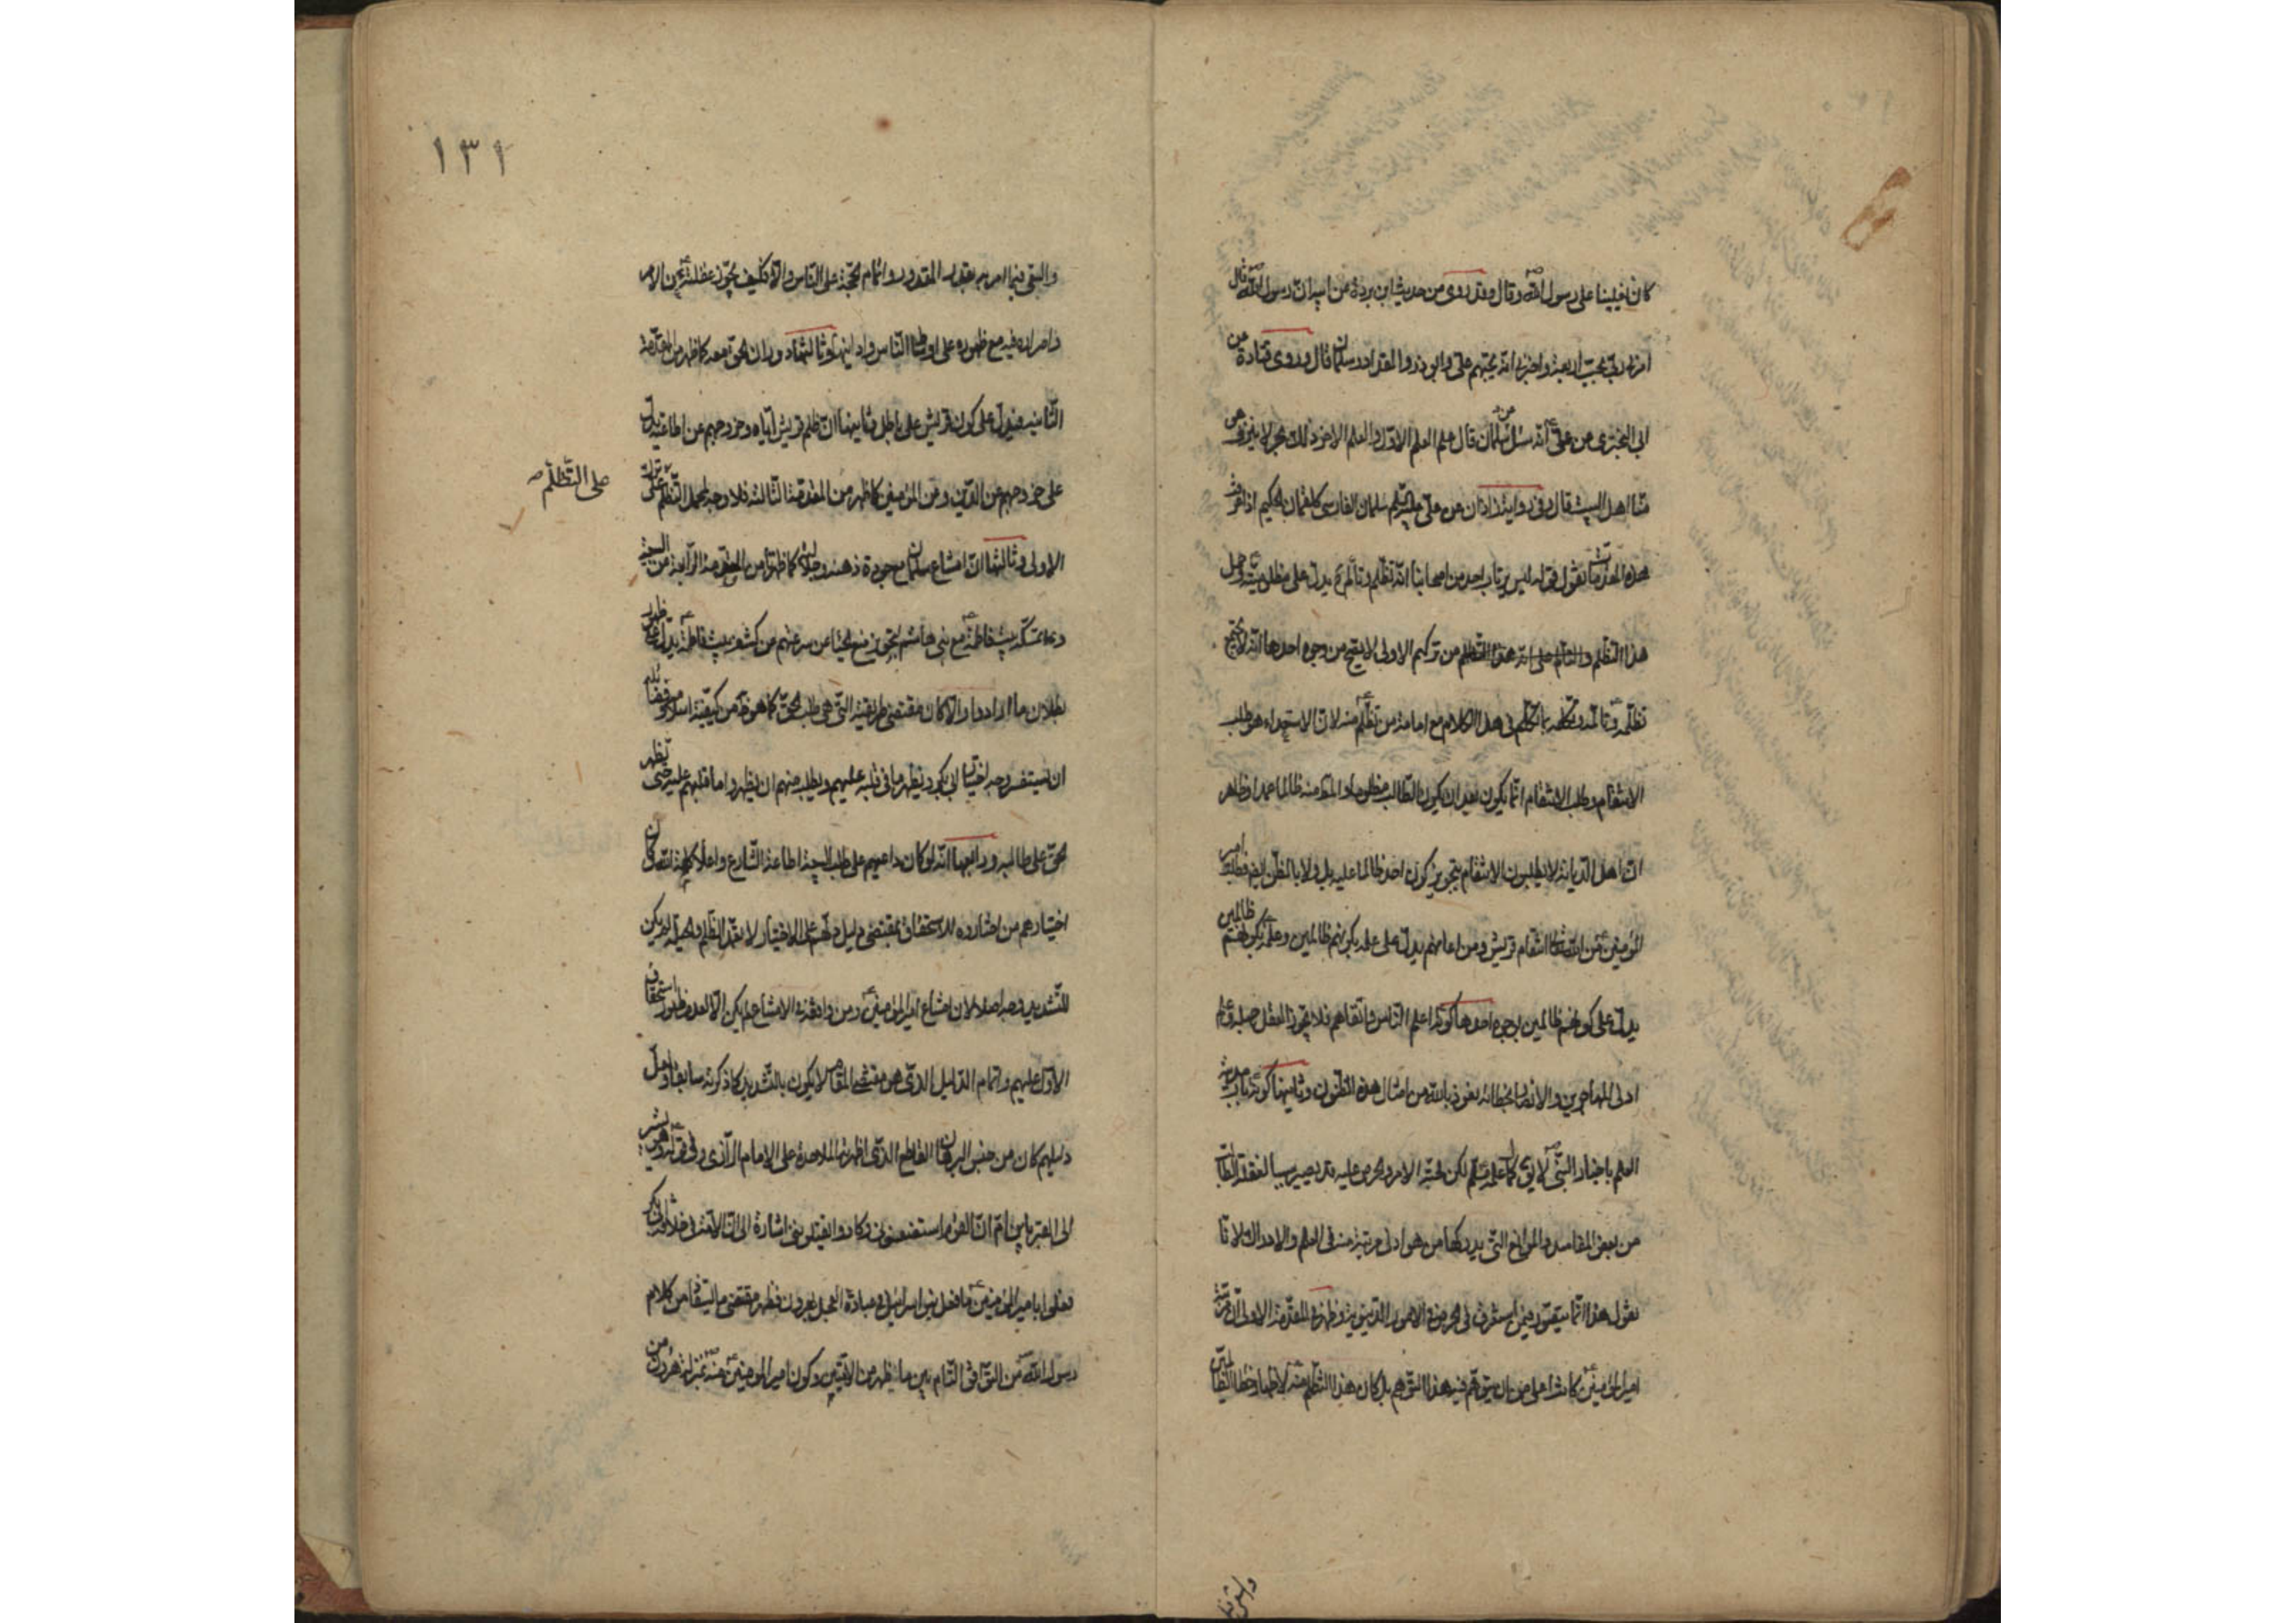 كان يغلبنا على رسول الله ص وقال وقد روى من حديث ابن بريدة عن ابيه ان رسول الله ص قال
امرني ربي بحب اربعة واخبرني انه يحبهم علي وابو ذر والمقداد وسلمان قال وروى قتادة عن
ابي البختري عن علي ع انه سئل عن سلمان فقال علم العلم الاول والعلم الاخر ذلك بحر لا ينزف هو
منا اهل البيت قال وفي رواية زاذان عن علي عليه السلم سلمان الفارسي كلقمان الحكيم اذا عرفت
هذه المقدمات نقول قوله ليس يرتاب احد من اصحابنا انه تظلم وتألم ثم يدل على مظلوميته وحمل
هذا التظلم والتألم على انه هذا التظلم من تركهم الاولى لا يصح من وجوه احدها انه لا يجتمع
تظلمه ع وتألمه وتكلمه بما تكلم في هذا الكلام مع امامة من تظلم ع منه لان الاستعداء هو طلب
الانتقام وطلب الانتقام انما يكون بعد ان يكون الطالب مظلوما والمنتقم منه ظالما عمدا وظاهر
ان اهل الديانة لا يطلبون الانتقام بتجويز كون احد ظالما عليه بل ولا بالظن ايضا فطلب امير
المؤمنين ع من الله تعالى انتقام قريش ومن اعانهم يدل على علمه بكونهم ظالمين وعلمه بكونهم ظالمين
يدل على كونهم ظالمين لوجوه احدها كونه اعلم الناس واتقاهم فلا يجوز العقل
ادنى المهاجرين والانصار بخطائه نعوذ بالله من امثال هذه الظنون وثانيها كونه باب مدينة
العلم باخبار النبي ص لا يق كمال علمه مسلم لكن محبة الامر والحرص عليه قد يصير سببا لغفلة الطالب
من بعض المفاسد والموانع التي يدركها من هو ادنى مرتبة منه في العلم والادراك لانا
نقول هذا انما يتصور فيمن استغرق في الحرص في الامور الدنيوية وظهر في المقدمة الاولى ان مرتبة
امير المؤمنين ع كانت اعلى من ان يتوهم فيه هذا التوهم بل كان هذا التظلم منه ع لاظهار خطاء الظالمين
والسعي فيما امر به بقدر المقدور واتمام الحجة على الناس والا فكيف يجوز غفلته ع عن الامر
وامراره فيه مع ظهوره على اوساط الناس وادانيهم وثالثها دوران الحق معه كما ظهر من المقدمة
الثانية فيدل على كون قريش على باطل وثانيها ان ظلم قريش اياه وخروجهم عن اطاعته يدل
على خروجهم عن الدين ومن المؤمنين كما ظهر من المقدمة الثالثة فلا وجه لحمل التظلم على ترك
على التظلم صح
الاولى وثالثها ان امتناع سلمان مع جودة ذهنه وجلالته كما ظهر من المقدمة الرابعة من البيعة
وعدم تمسكه ببيت فاطمة ع مع بني هاشم لتجويز منع لحياء من سرعتهم من كشف بيت فاطمة ع يدل على ظهور
بطلان ما ارادوا والا كان مقتضى طريقته التي هي طلب الحق كما هو ظاهر من كيفية اسلامه
ان يستفسر وجه اختيار ابي بكر ويظهر ما في قلبه عليهم ويطلب منهم ان يظهروا ما في قلبهم عليه حتى يظهر
الحق على طالبيه ورابعها انه لو كان داعيهم على طلب البيعة اطاعة الشارع واعلاء كلمة الله وكان
اختيارهم من اختاروه للاستحقاق بمقتضى دليل دلهم على الاختيار لا بقصد الظلم والحيلة لم يكن
للتشديد وجه اصلا لان امتناع امير المؤمنين ع ومن وافقه في الامتناع لم يكن الا لعدم ظهور استحقاق
الاول عليهم واتمام الدليل الذي هو مقتضى المقام لا يكون بالتشديد كما ذكرته سابقا ولعل
دليلهم كان من جنس البرهان القاطع الذي اظهرته الملاحدة على الامام الرازي وفي قوله ع وهو يشير
الى القبر يابن ام ان القوم استضعفوني وكادوا يقتلونني اشارة الى ان الامة في خلافة ابي بكر
فعلوا بامير المؤمنين ع ما فعل بنو اسرائيل في عبادة العجل بهرون فظهر مقتضى ما استفاد من كلام
رسول الله ص من التوافق التام بين ما يظهر من الامتين وكون امير المؤمنين ع منه ص بمنزلة هرون من
١٣١